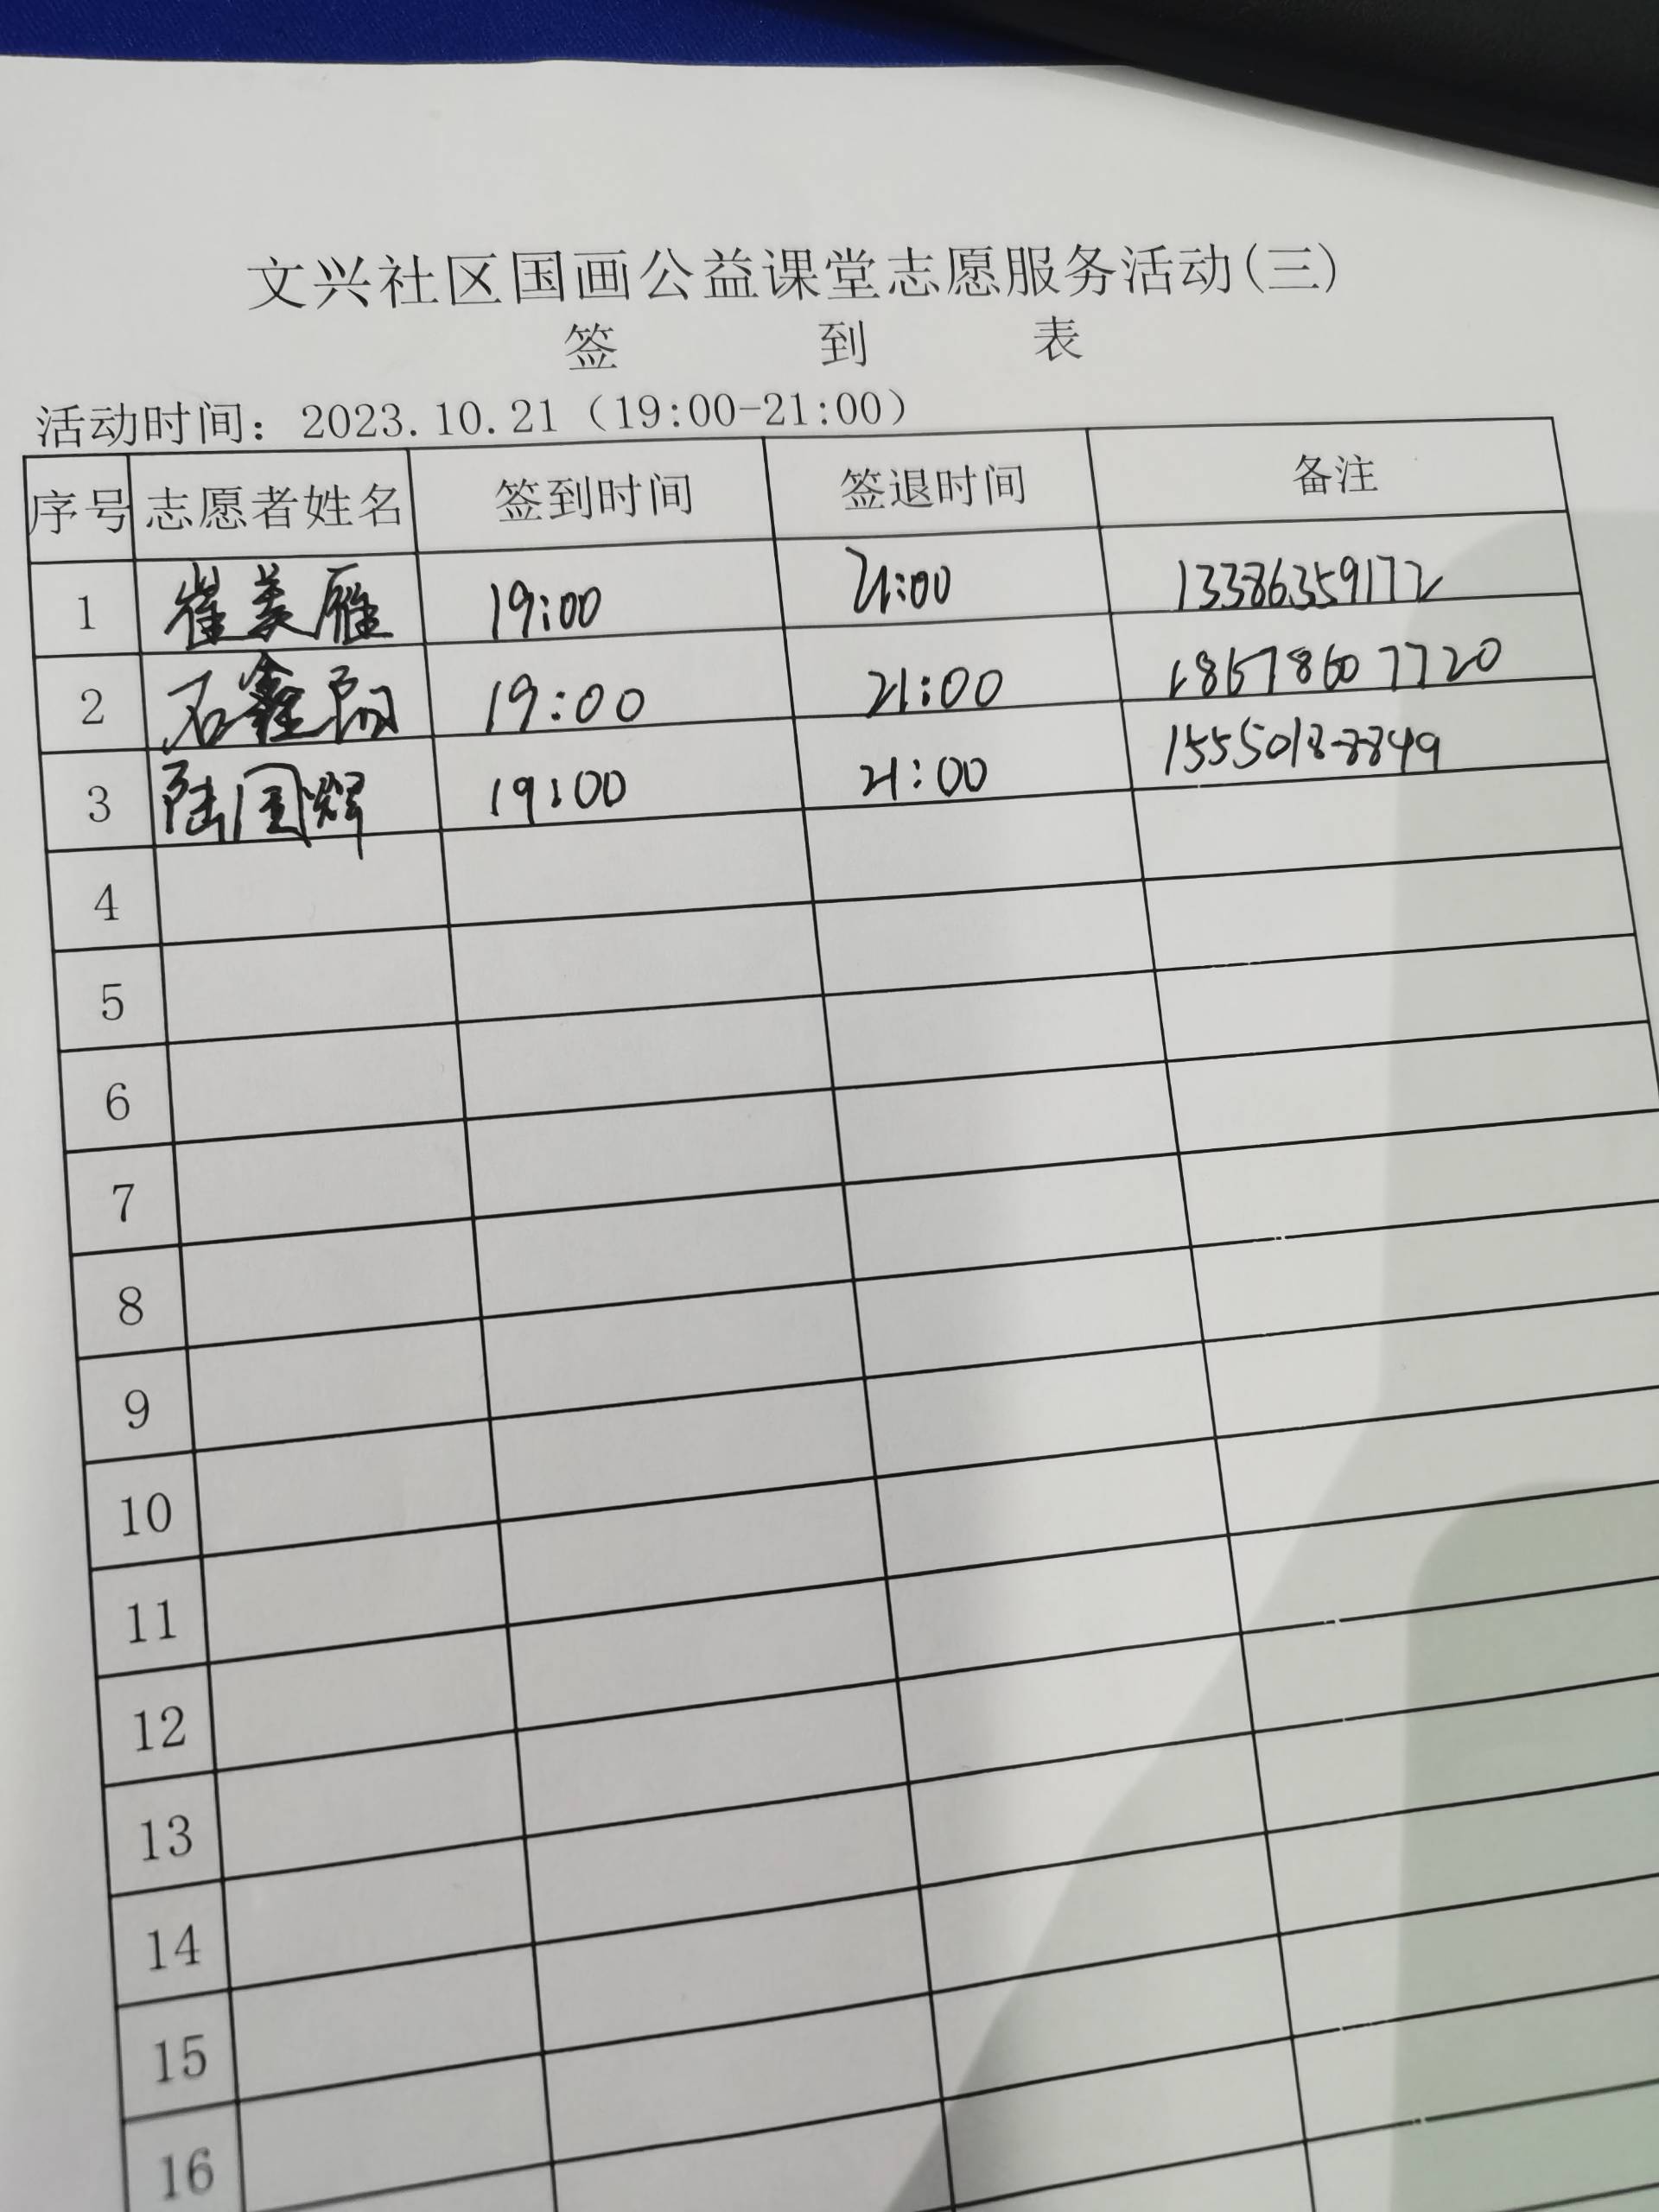 文兴社区国画公益课堂志愿服务活动(三)
签 到 表
活动时间：2023.10.21（19:00-21:00）
序号 志愿者姓名 签到时间 签退时间 备注
1 崔美雁 19:00 21:00 13386359172
2 石鑫 19:00 21:00 18678607720
3 陆国辉 19:00 21:00 15550188849
4
5
6
7
8
9
10
11
12
13
14
15
16